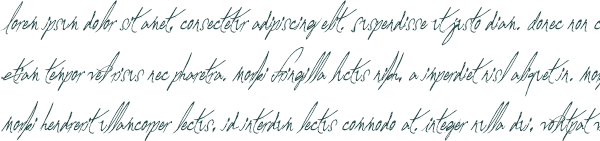 lorem ipsum dolor sit amet, consectetur adipiscing elit. suspendisse ut justo diam. donec non c
etiam tempor vel risus nec pharetra. morbi fringilla luctus nibh, a imperdiet nisl aliquet in. mor
morbi hendrerit ullamcorper lectus, id interdum lectus commodo at. integer nulla dui, volutpat v